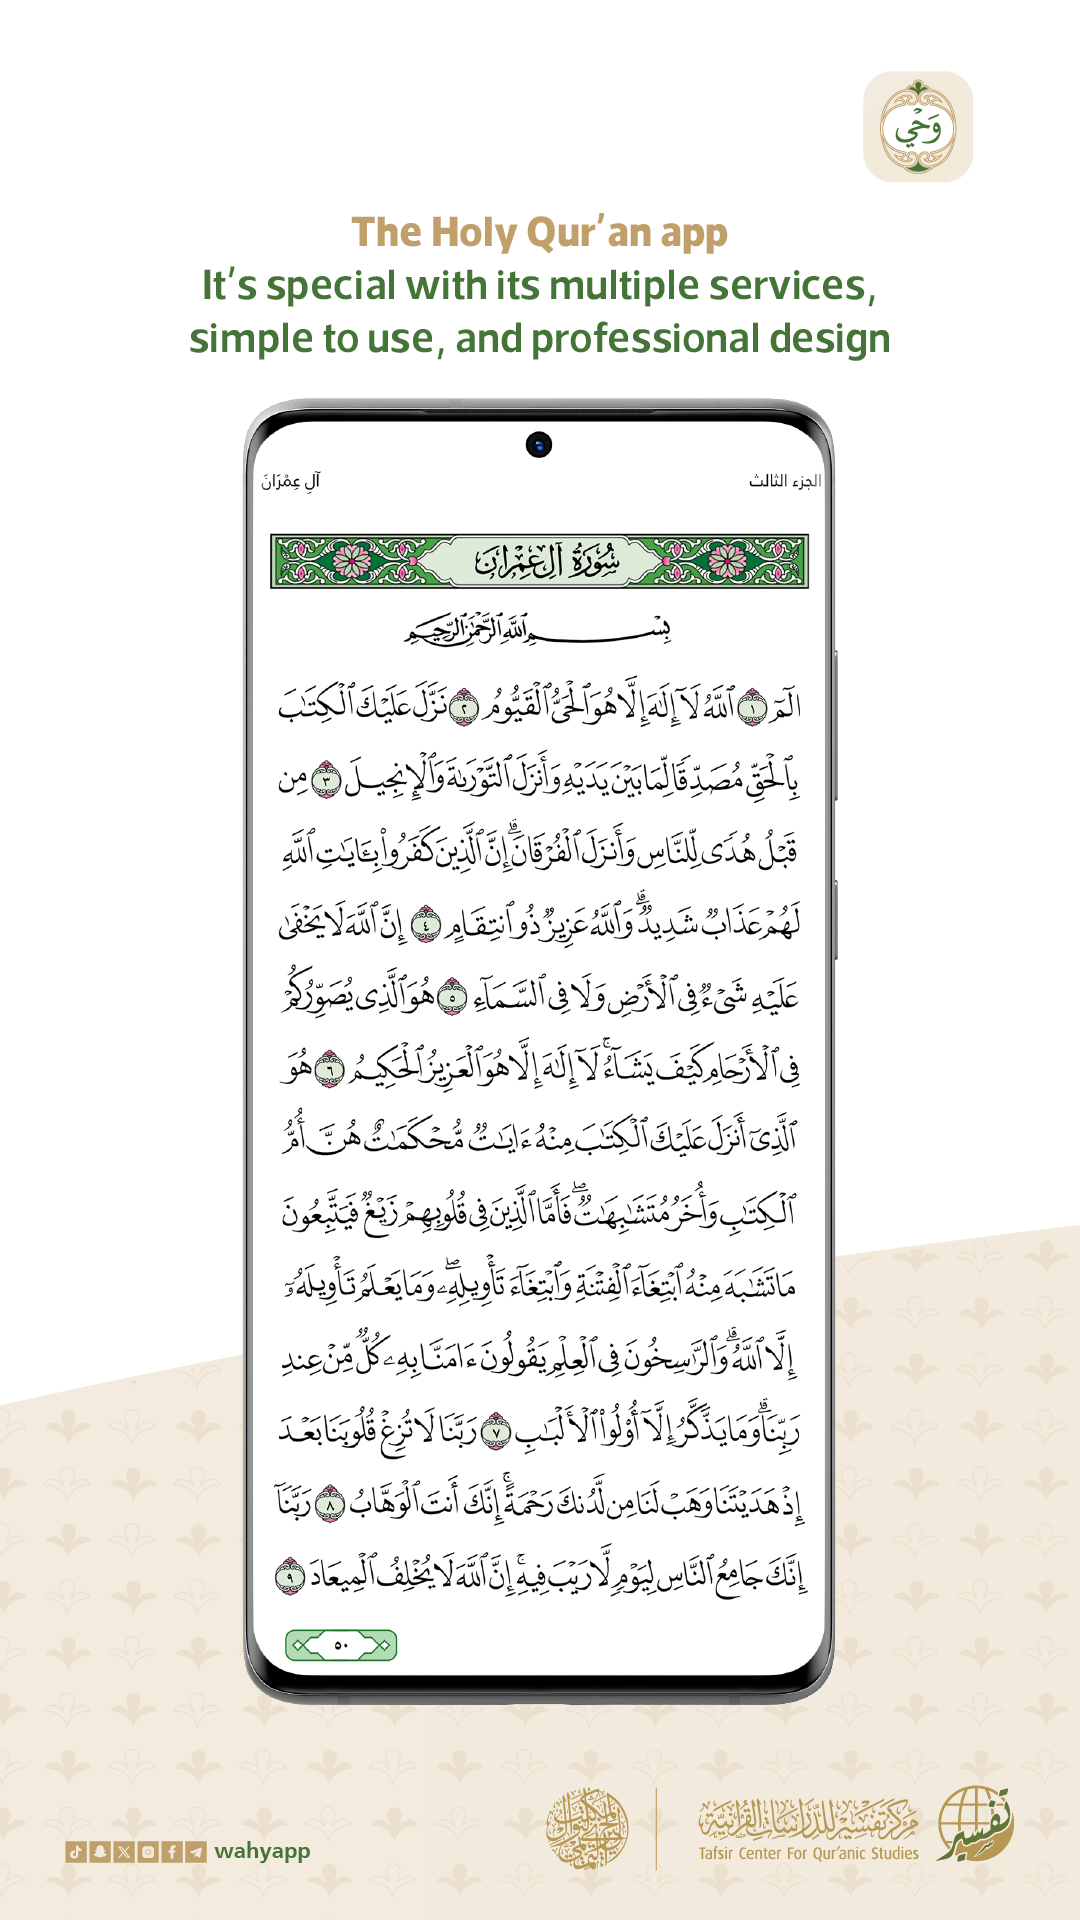 وَحْي
The Holy Qur’an app
It’s special with its multiple services,
simple to use, and professional design
الجزء الثالث
آلِ عِمْرَانَ
سُورَةُ آلِ عِمْرَانَ
بِسْمِ ٱللَّهِ ٱلرَّحْمَٰنِ ٱلرَّحِيمِ
الٓمٓ ١ ٱللَّهُ لَآ إِلَٰهَ إِلَّا هُوَ ٱلْحَىُّ ٱلْقَيُّومُ ٢ نَزَّلَ عَلَيْكَ ٱلْكِتَٰبَ
بِٱلْحَقِّ مُصَدِّقًا لِّمَا بَيْنَ يَدَيْهِ وَأَنزَلَ ٱلتَّوْرَىٰةَ وَٱلْإِنجِيلَ ٣ مِن
قَبْلُ هُدًى لِّلنَّاسِ وَأَنزَلَ ٱلْفُرْقَانَ ۗ إِنَّ ٱلَّذِينَ كَفَرُوا۟ بِـَٔايَٰتِ ٱللَّهِ
لَهُمْ عَذَابٌ شَدِيدٌ ۗ وَٱللَّهُ عَزِيزٌ ذُو ٱنتِقَامٍ ٤ إِنَّ ٱللَّهَ لَا يَخْفَىٰ
عَلَيْهِ شَىْءٌ فِى ٱلْأَرْضِ وَلَا فِى ٱلسَّمَآءِ ٥ هُوَ ٱلَّذِى يُصَوِّرُكُمْ
فِى ٱلْأَرْحَامِ كَيْفَ يَشَآءُ ۚ لَآ إِلَٰهَ إِلَّا هُوَ ٱلْعَزِيزُ ٱلْحَكِيمُ ٦ هُوَ
ٱلَّذِىٓ أَنزَلَ عَلَيْكَ ٱلْكِتَٰبَ مِنْهُ ءَايَٰتٌ مُّحْكَمَٰتٌ هُنَّ أُمُّ
ٱلْكِتَٰبِ وَأُخَرُ مُتَشَٰبِهَٰتٌ ۖ فَأَمَّا ٱلَّذِينَ فِى قُلُوبِهِمْ زَيْغٌ فَيَتَّبِعُونَ
مَا تَشَٰبَهَ مِنْهُ ٱبْتِغَآءَ ٱلْفِتْنَةِ وَٱبْتِغَآءَ تَأْوِيلِهِۦ ۖ وَمَا يَعْلَمُ تَأْوِيلَهُۥٓ
إِلَّا ٱللَّهُ ۗ وَٱلرَّٰسِخُونَ فِى ٱلْعِلْمِ يَقُولُونَ ءَامَنَّا بِهِۦ كُلٌّ مِّنْ عِندِ
رَبِّنَا ۗ وَمَا يَذَّكَّرُ إِلَّآ أُو۟لُوا۟ ٱلْأَلْبَٰبِ ٧ رَبَّنَا لَا تُزِغْ قُلُوبَنَا بَعْدَ
إِذْ هَدَيْتَنَا وَهَبْ لَنَا مِن لَّدُنكَ رَحْمَةً ۚ إِنَّكَ أَنتَ ٱلْوَهَّابُ ٨ رَبَّنَآ
إِنَّكَ جَامِعُ ٱلنَّاسِ لِيَوْمٍ لَّا رَيْبَ فِيهِ ۚ إِنَّ ٱللَّهَ لَا يُخْلِفُ ٱلْمِيعَادَ ٩
٥٠
wahyapp
مركز تفسير للدراسات القرآنية
Tafsir Center For Qur’anic Studies
تفسير